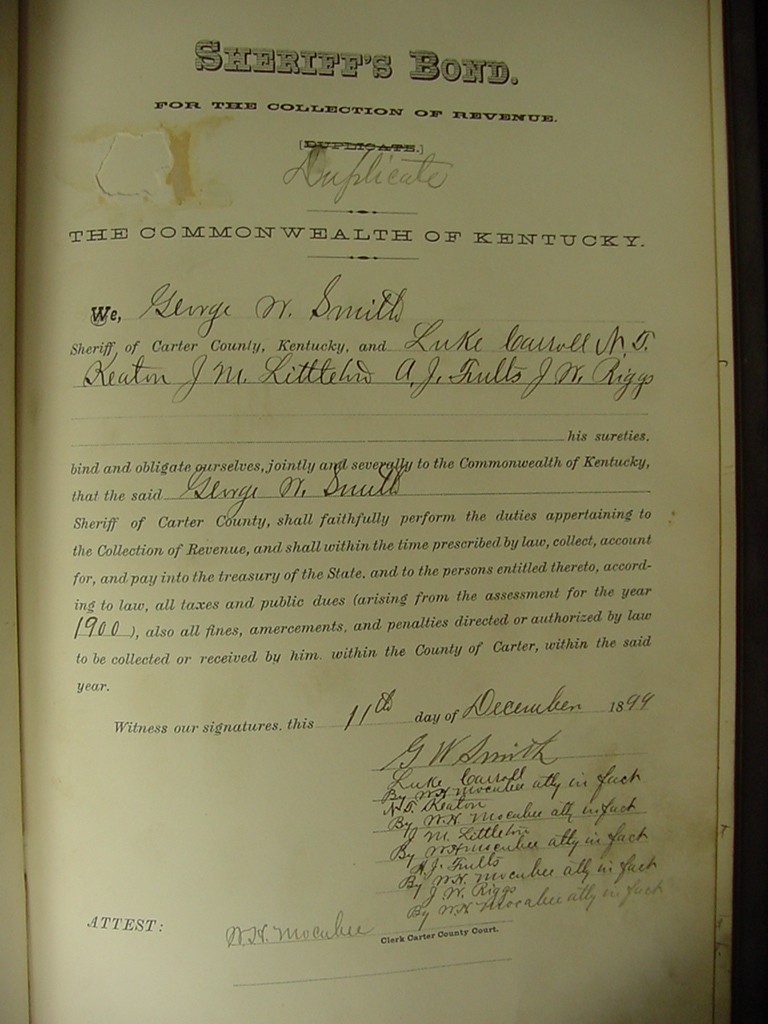 SHERIFF'S BOND.
FOR THE COLLECTION OF REVENUE.
[DUPLICATE.]
Duplicate
THE COMMONWEALTH OF KENTUCKY.
We, George W. Smith
Sheriff of Carter County, Kentucky, and Luke Carroll N. T.
Keaton J M. Littleton A. J. Fults J. W. Riggs
his sureties,
bind and obligate ourselves, jointly and severally to the Commonwealth of Kentucky,
that the said George W. Smith
Sheriff of Carter County, shall faithfully perform the duties appertaining to
the Collection of Revenue, and shall within the time prescribed by law, collect, account
for, and pay into the treasury of the State. and to the persons entitled thereto, accord-
ing to law, all taxes and public dues (arising from the assessment for the year
1900), also all fines, amercements, and penalties directed or authorized by law
to be collected or received by him. within the County of Carter, within the said
year.
Witness our signatures, this 11th day of December 1899
G W Smith
Luke Carroll
By W H Mocabee atty in fact
N. T. Keaton
By W. H. Mocabee atty in fact
J M. Littleton
By W H Mocabee atty in fact
A. J. Fults
By W. H. Mocabee atty in fact
J. W. Riggs
By W H Mocabee atty in fact
ATTEST: W. H. Mocabee Clerk Carter County Court.